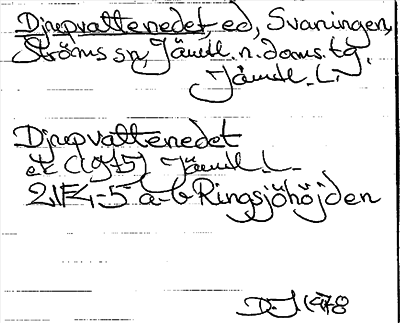 Djupvattenedet, ed, Svaningen,
Ströms sn, Jämtl. n. doms. tg.
Jämtl. L.
Djupvattenedet
ek C(1975) Jämtl. L.
21F4-5 a-b Ringsjöhöjden
D.J. 1978